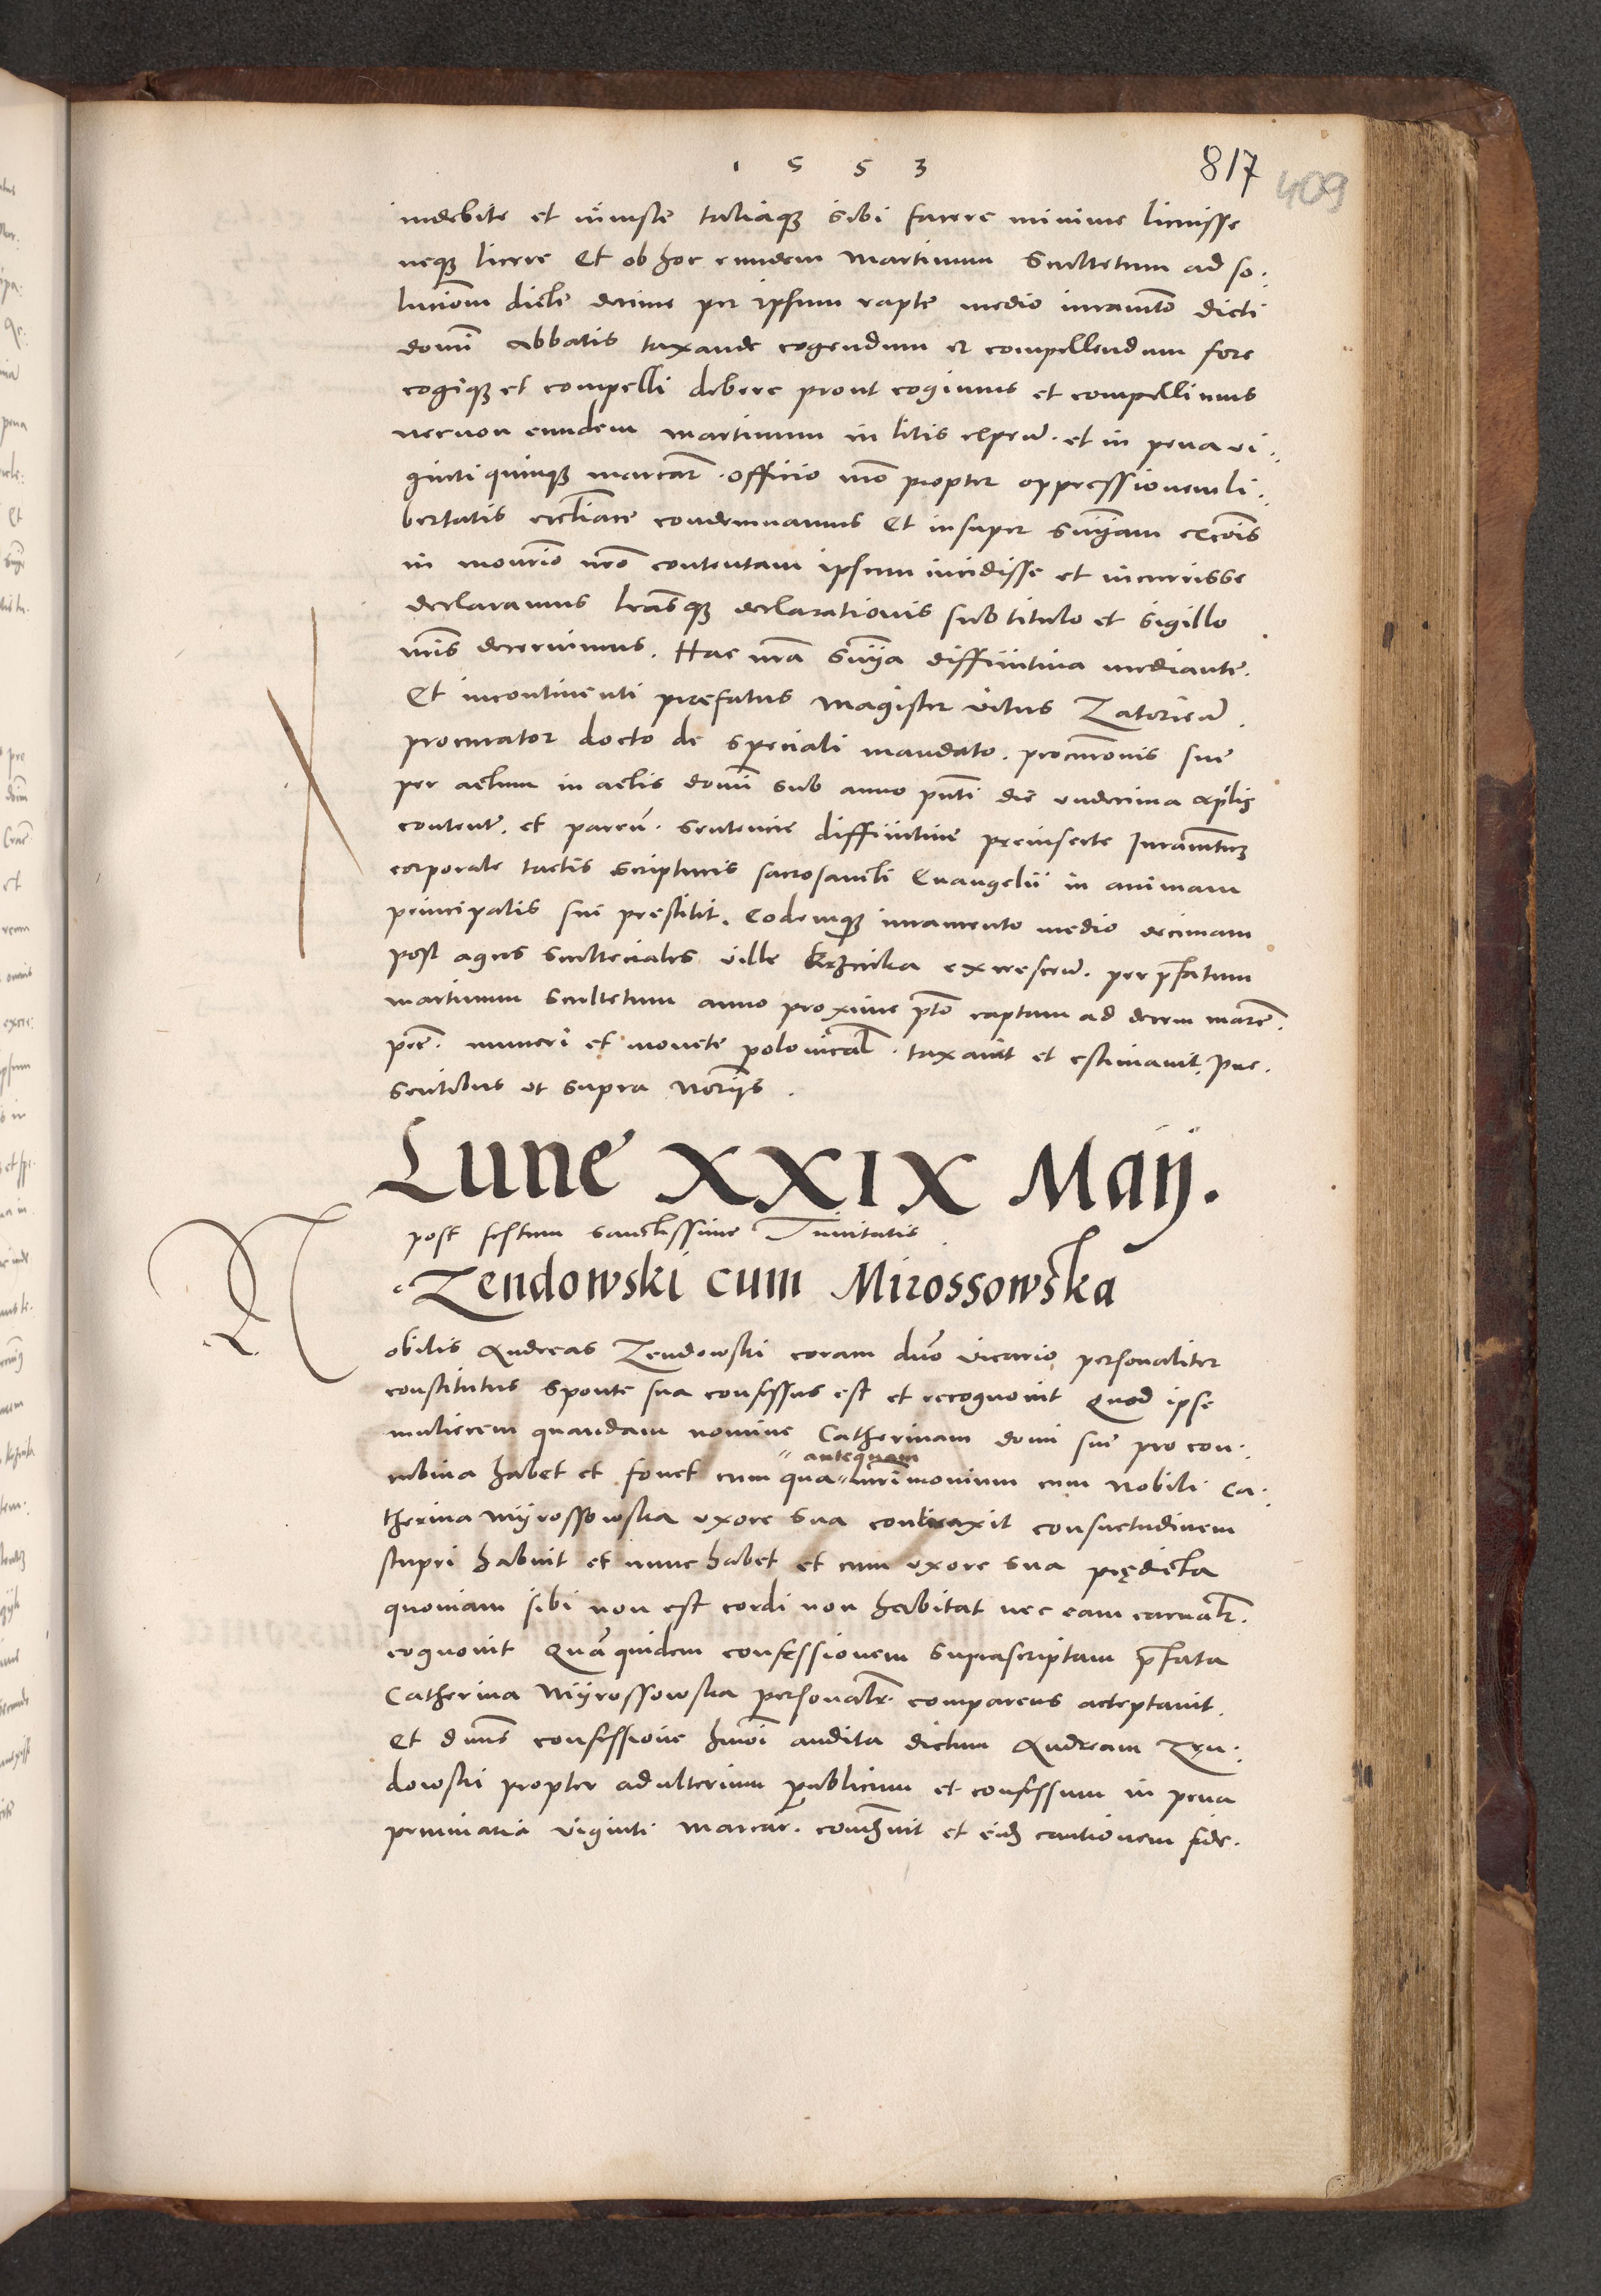 1 5 5 3
817
409
indebite et iniuste taliaque sibi facere minime licuisse
neque licere Et ob hoc eundem Martinum Scultetum ad so.
lucionem dicte decime per ipsum rapte medio iuramento dicti
domini Abbatis taxande cogendum et compellendum fore
cogique et compelli debere prout cogimus et compellimus
necnon eundem Martinum in litis expensis et in pena vi.
ginti quinque marcarum officio nostro propter oppressionem li.
bertatis ecclesiastice condemnamus Et insuper sententiam excommunicationis
in monitorio nostro contentam ipsum incidisse et incurrisse
declaramus literasque declarationis sub titulo et sigillo
nostris decernimus. Hac nostra sententia diffinitiva mediante.
Et incontinenti prefatus Magister Vitus Zatorien.
procurator docto de speciali mandato. procurationis sue
per actum in actis domini sub anno presenti die undecima Aprilis
content. et paren. sentencie diffinitive preinserte Iuramentum
corporale tactis scripturis sacrosancti Evangelii in animam
principalis sui prestitit. Eodemque iuramento medio decimam
post agros scultecialis ville excrescen. per prefatum
Martinum Scultetum anno proxime preterito captam ad decem marcas.
pecunie. numeri et monete polonicalis. taxavit et estimavit. Pre.
sentibus ut supra Notariis.
Lune XXIX Maij.
post festum sanctissime Trinitatis
Zendowski cum Mirossowska
Nobilis Andreas Zendowski coram domino vicario personaliter
constitutus sponte sua confessus est et recognovit Quod ipse
mulierem quandam nomine Catherinam domi sue pro con.
cubina habet et fovet cum qua antequam matrimonium cum Nobili Ca.
therina Myrossowska uxore sua contraxit consuetudinem
stupri habuit et nunc habet et cum uxore sua prędicta
quoniam sibi non est cordi non habitat nec eam carnaliter.
cognovit Quam quidem confessionem suprascriptam prefata
Catherina Myrossowska personaliter comparens acceptavit.
Et dominus confessione huiusmodi audita dictum Andream Zen.
dowski propter adulterium publicum et confessum in pena
pecuniaria viginti marcar. condemnavit et eidem cautionem fide.